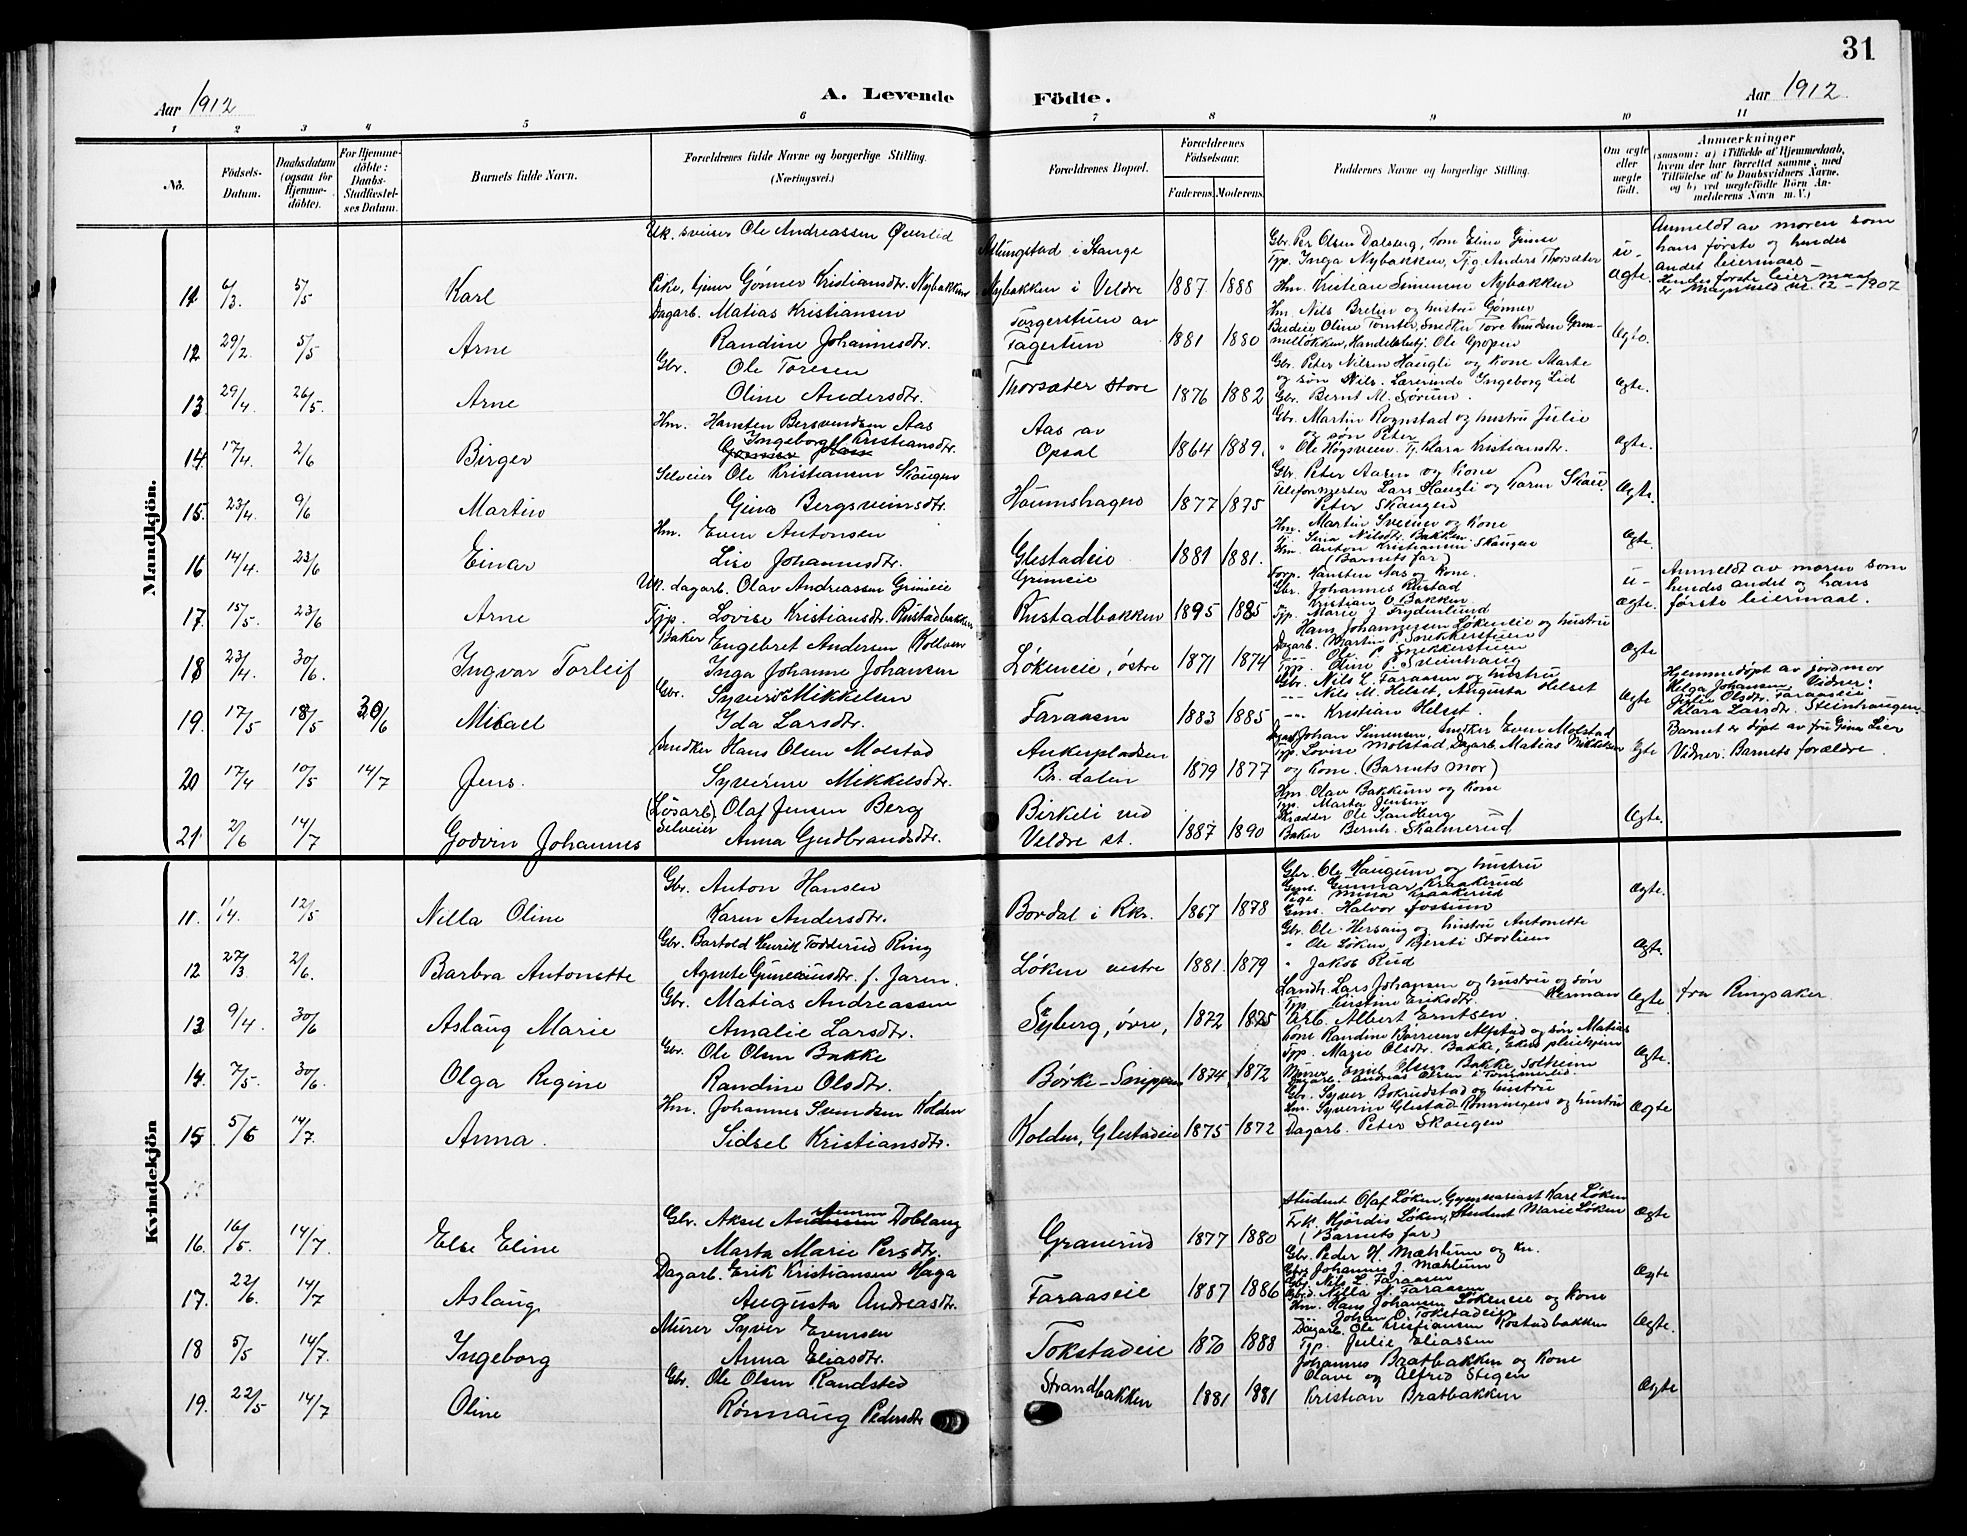 31
Aar 1912 A. Levende Födte. Aar 1912
1 2 3 4 5 6 7 8 9 10 11
No.
Födsels-Datum.
Daabsdatum (ogsaa för Hjemme-döbte).
For Hjemme-döbte: Daabs-Stadfæstel-ses Datum.
Barnets fulde Navn.
Forældrenes fulde Navne og borgerlige Stilling.
(Næringsvei.)
Forældrenes Bopæl.
Forældrenes Födselsaar.
Faderens. Moderens.
Faddernes Navne og borgerlige Stilling.
Om ægte eller uægte födt.
Anmærkninger
(saasom: a) i Tilfælde af Hjemmedaab,
hvem der har forrettet samme, med
Tilföielse af to Daabsvidners Navne.
og b) ved uægtefödte Börn An-
melderens Navn m.V.)
Mandkjön.
Uk. sveiser Ole Andreassen Øverlid
11 6/3. 5/5 Karl Pike, Gønner Kristiansdtr. Nybakken
i Stange
Nybakken i Veldre 1887 1888
Gbr. Per Olsen Dalsberg,
Tjp. Inga Nybakken, Tjg. Anders Thorsæter
Hm. Kristian Simensen Nybakken
u-
ægte.
Anmeldt av moren som
hans første og hendes
andet leiermaal
Hendes første leiermaal
12 – 1907
12 29/2. 5/5 Arne Dagarb. Matias Kristiansen
Randine Johannesdtr.
Torgerstuen av
Fagertun 1881 1880
Hm. Nils Brelin og hustru Gønner
Budeie Oline Tomter, Snedker Tore Knudsen Grøn-
Handelsbetj. Ole Gropen
Ægte.
13 29/4. 26/5. Arne Gbr. Ole Toresen
Oline Andersdtr.
Thorsæter store 1876 1882
Gbr. Peter Nilsen Haugli og kone Marte
og søn Nils. Lærerinde Ingeborg Lid
Gbr. Bernt M. Sørum.
Ægte.
14. 17/4. 2/6 Birger Hm. Hansten Bersvendsen Aas
Ingeborg Kristiansdtr.
Aas av
Opsal 1864 1889.
Gbr. Martin Rognstad og hustru Julie
og søn Peter
" Ole Høgsveen. Tj. Klara Kristiansdtr.
Ægte.
15. 23/4. 9/6 Martin Selveier Ole Kristiansen Skaugen
Gina Bergsveinsdtr.
1877 1875
Gbr. Peter Aasen og kone
Telefonmester Lars Haugli og Karen Skau.
Peter Skaugen
Ægte.
16 14/4. 23/6 Einar Hm. Even Antonsen
Lise Johannesdtr.
Glestadeie 1881 1881.
Hm. Martin Sveum og kone
Tj. Sina Nilsdtr. Bakken
Hm. Anton Kristiansen Skaugen
(Barnets far)
Ægte.
17. 15/5. 23/6 Arne Uk. dagarb. Olav Andreassen Grimeie
Tjp. Lovise Kristiansdtr. Rustadbakken
Grimeie
Rustadbakken 1895 1885
Forp. Hansten Aas og kone.
Gbr. Johannes Rustad
Kristian O. Bakken
Tjp. Marie Frydenlund
u-
ægte.
Anmeldt av moren som
hendes andet og hans
første leiermaal.
18 23/4. 30/6. Ingvar Torleif Baker Engebret Andersen Kolven
Inga Johanne Johansen
Løkeneie, østre 1871 1874
Hans Johannessen Løkeneie og hustru
Dagarb. Martin P. Snekkerstuen
Ole P. Snekkerstuen
Tjp. Oline P. Steinhaug
Ægte
19. 17/5 18/5 30/6 Mikael Gbr. Syver Mikkelsen
Ida Larsdtr.
Faraasen 1883 1885
Gbr. Nils L. Faraasen og hustru
Nils M. Helset, Augusta Helset
Kristian Helset.
Ægte
Hjemmedøpt av jordmor
Helga Johansen Vidner:
Julie Olsdtr. Faraaseie
Klara Larsdtr. Steinhaugen
20 17/4 10/5 14/7 Jens. Snedker Hans Olsen Molstad
Syverine Mikkelsdtr.
Ankerpladsen
Br. dalen 1879 1877
Dagarb. Johan Simensen, Snedker Even Molstad
Tjp. Lovise Molstad, Dagarb. Matias Mikkelsen
og kone. (Barnets mor)
Ægte
Barnet er døpt av fru Gina Lier
Vidner: Barnets forældre.
21. 2/6 14/7 Godvin Johannes (Løsarb.) Olaf Jensen Berg
Selveier Anna Gudbrandsdtr.
Birkeli ved
Veldre st. 1887 1890
Hm. Olav Bakkum og kone
Tjp. Marta Jensen
Skrædder Ole Sandberg
Baker Bernh. Skalmerud
Ægte.
Kvindekjön
11. 1/4. 12/5 Nilla Oline Gbr. Anton Hansen
Karen Andersdtr.
Bordal i Rkr. 1867 1878
Gbr. Ole Haugum og hustru
Gms. Gunnar Kraakerud
Pige Mina Kraakerud
Gms. Halvor Fossum
Ægte.
12 27/3 2/6. Barbra Antonette Gbr. Bartold Henrik Fodderud Ring
Agnete Gunneriusdtr. f. Jaren.
Løken vestre 1881. 1879
Gbr. Ole Hersaug og hustru Antonette
" Ole Løken, Kjersti Storlien
" Jakob Rud
Ægte.
13 9/4. 30/6 Aslaug Marie Gbr. Matias Andreassen
Amalie Larsdtr.
Eyberg, øvre, 1872 1875
Landh. Lars Johansen og hustru og søn
Herman
Tjp. Kirstine Eriksdtr.
Arb. Albert Erntsen.
Ægte
fra Ringsaker.
14. 7/5. 30/6. Olga Regine Gbr. Ole Olsen Bakke
Randine Olsdtr.
Børke-Snippen 1874, 1872
Kone Randine Børresen Alfstad og søn Matias
Tjp. Marie Olsdtr. Bakke,
Murer Emil Olsen Bakke Solheim
Dagarb. Andreas Olsen i Tommerlid
Ægte.
15. 5/6 14/7. Anna. Hm. Johannes Svendsen Kolden
Sidsel Kristiansdtr.
Kolden, Glestadeie 1875 1872
Gbr. Syver Bokrudstad og hustru
Hm. Syverin Glestad Rønningen og hustru
Dagarb. Peter Skaugen
Ægte
16. 16/5. 14/7. Else Eline Gbr. Aksel Andersen Doblaug
Marta Marie Persdtr.
Granerud 1877 1880
Student Olaf Løken, Gymnasiast Karl Løken
Frk. Hjørdis Løken, Student Marie Løken
(Barnets far)
Ægte
17. 22/6. 14/7 Aslaug Dagarb. Erik Kristiansen Haga
Augusta Andreasdtr.
Faraaseie 1887 1886
Gbr. Peder H. Mæhlum og kn.
Gbrs. Johannes J. Mæhlum
Gbr. Nils L. Faraasen
Nilla J. Faraasen
Ægte
18 5/5 14/7. Ingeborg Murer Syver Evensen
Anna Eliasdtr.
Tokstadeie 1870 1888
Hm. Hans Johansen Løkeneie og kone
Johan O. Tokstadeie
Dagarb. Ole Kristiansen Rostadbakken
Tj. Julie Eliassen
Ægte.
19. 22/5 14/7 Oline Gbr. Ole Olsen Randsted
Rønnaug Pedersdtr
Strandbakken 1881 1881
Johannes Bratbakken og kone
Olave og Alfred Stigen
Kristian Bratbakken
Ægte